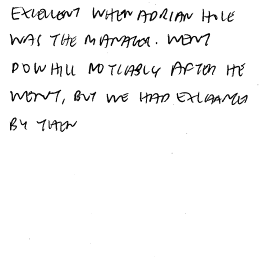 EXCELLENT WHEN ADRIAN HOLE
WAS THE MANAGER. WENT
DOWHILL NOTIABLY AFTER HE
WENT, BUT WE HAD EXCHANGED
BY THEN